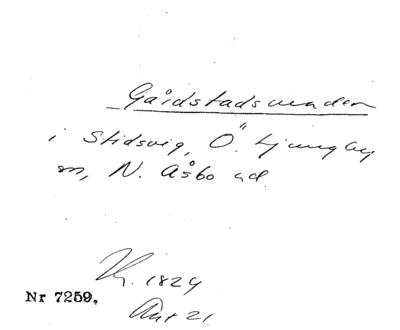 Gårdstadsmaden
i Stidsvig, Ö. Ljungby
sn, N. Åsbo hd.
Nr 7259.
1824
21